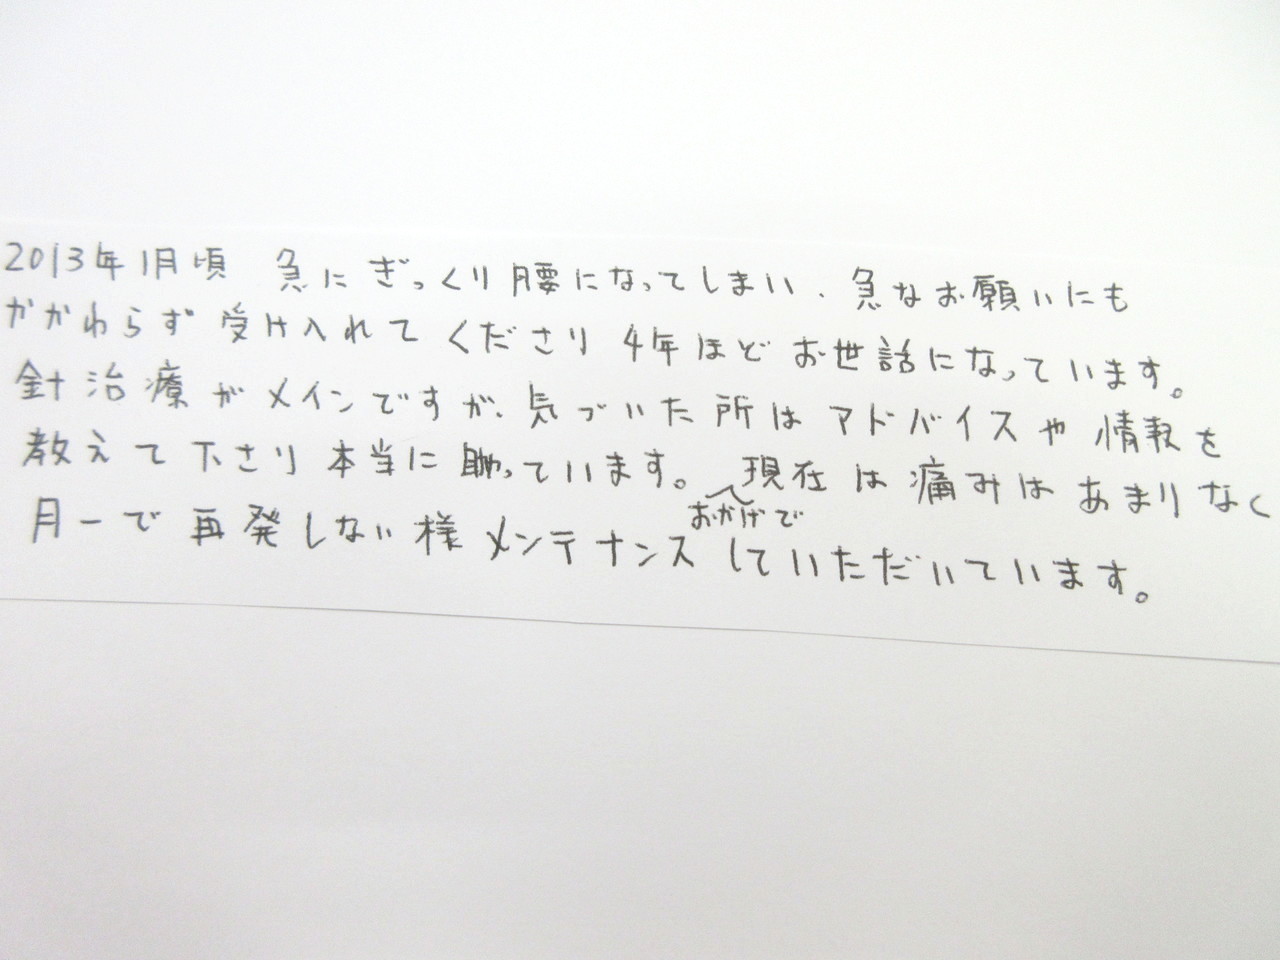 2013年1月頃 急にぎっくり腰になってしまい、急なお願いにも
かかわらず受け入れてくださり4年ほどお世話になっています。
針治療がメインですが、気づいた所はアドバイスや情報を
教えて下さり本当に助っています。現在は痛みはあまりなく
おかげで
月一で再発しない様メンテナンスしていただいています。